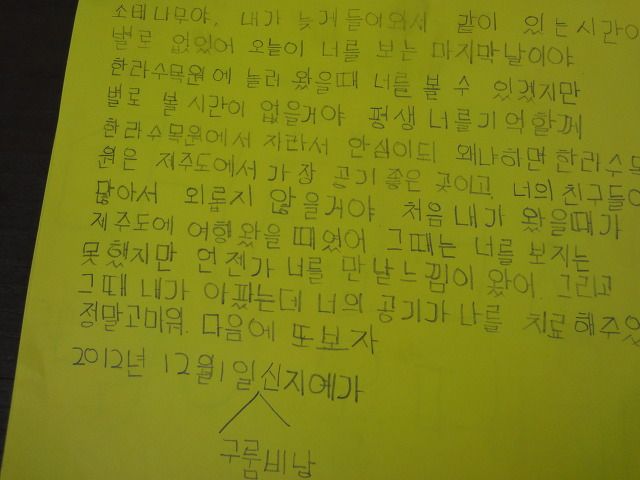 소테나무야, 내가 늦게 들어와서 같이 있는 시간이
별로 없었어 오늘이 너를 보는 마지막 날이야
한라수목원에 놀러 왔을때 너를 볼 수 있겠지만
별로 볼 시간이 없을거야 평생 너를 기억할께
한라수목원에서 자라서 안심이되 왜냐하면 한라수목
원은 제주도에서 가장 공기 좋은 곳이고, 너의 친구들이
많아서 외롭지 않을거야 처음 내가 왔을때가
제주도에 여행 왔을 때였어 그때는 너를 보지는
못했지만 언젠가 너를 만날 느낌이 왔어. 그리고
그때 내가 아팠는데 너의 공기가 나를 치료해주었
정말고마워. 다음에 또보자
2012년 12월1일 신지예가
구룸비낭